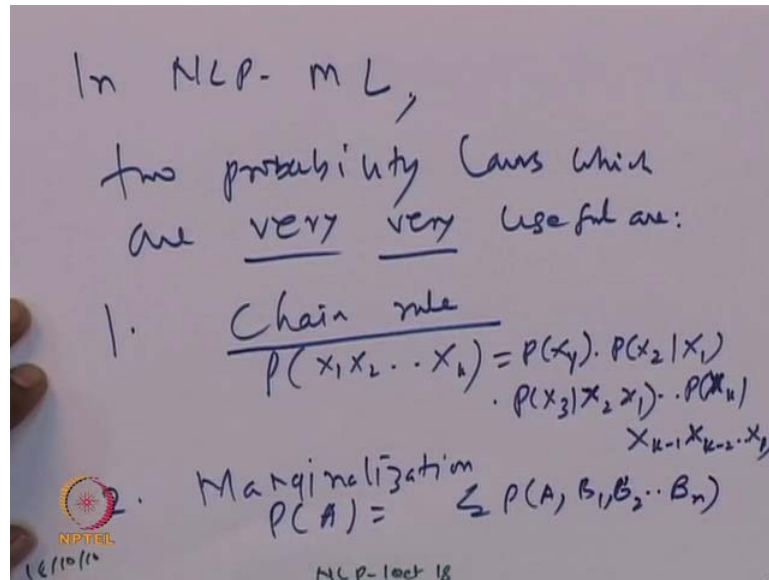 In NLP- ML,
two probability laws which
are very very useful are:
1. Chain rule
P(X₁X₂..Xₖ) = P(X₁). P(X₂|X₁)
. P(X₃|X₂X₁).. P(Xₖ|
Xₖ₋₁Xₖ₋₂..X₁)
2. Marginalization
P(A) = Σ P(A, B₁,B₂..Bₙ)
NPTEL
NLP-lect 18